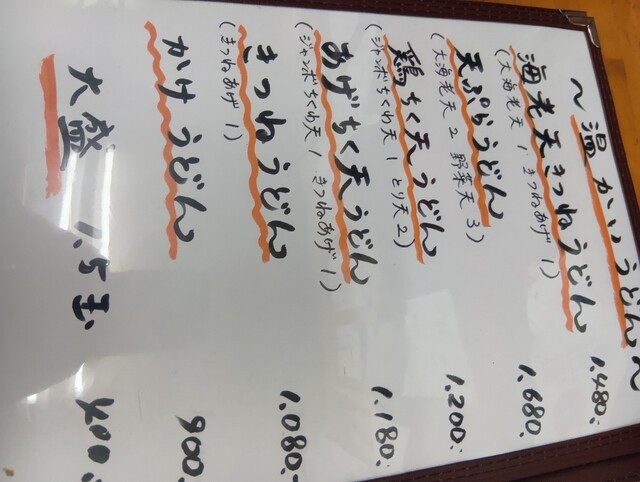 〜温かいうどん〜
海老天きつねうどん 1.480.-
(大海老天 1. きつねあげ 1)
天ぷらうどん 1.680.-
(大海老天 2 野菜天 3)
鶏ちく天うどん 1.200.-
(ジャンボちくわ天 1 とり天 2)
あげちく天うどん 1.180.-
(ジャンボちくわ天 1 きつねあげ 1)
きつねうどん 1.080.-
(きつねあげ 1)
かけうどん 900.
大盛 1.5玉 400.